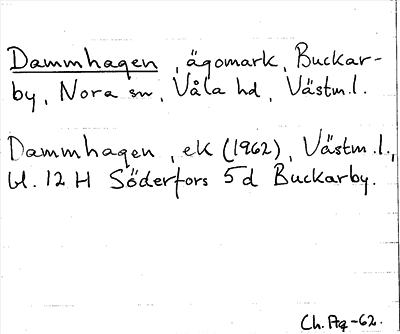 Dammhagen, ägomark, Buckar-
by, Nora sn, Våla hd, Västm.l.
Dammhagen, ek (1962), Västm.l.,
bl. 12 H Söderfors 5 d Buckarby.
Ch. -62.